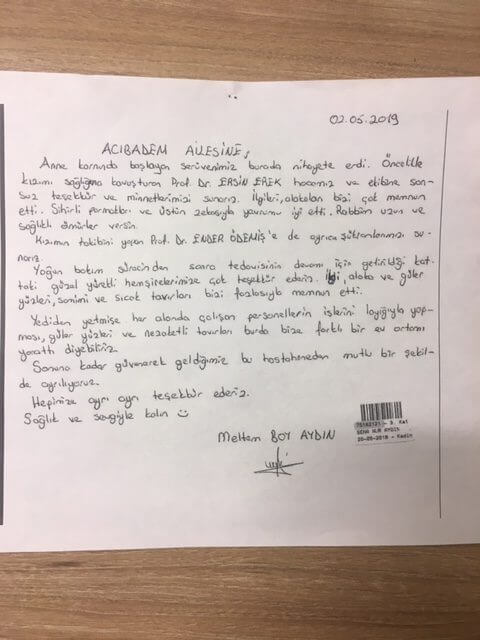 02.05.2019
ACIBADEM AİLESİNE,
Anne karnında başlayan serüvenimiz burada nihayete erdi. Öncelikle
kızımı sağlığına kavuşturan Prof. Dr. ERSİN EREK hocamız ve ekibine son-
suz teşekkür ve minnetlerimizi sunarız. İlgileri, alakaları bizi çok memnun
etti. Sihirli parmakları ve üstün zekasıyla yavrumu iyi etti. Rabbim uzun ve
sağlıklı ömürler versin.
Kızımın takibini yapan Prof. Dr. ENDER ÖDEMİŞ'e de ayrıca şükranlarımızı su-
narız.
Yoğun bakım sürecinden sonra tedavisinin devamı için getirildiği kat-
taki güzel yürekli hemşirelerimize çok teşekkür ederiz. İlgi, alaka ve güler
yüzleri, samimi ve sıcak tavırları bizi fazlasıyla memnun etti.
Yediden yetmişe her alanda çalışan personellerin işlerini layığıyla yap-
ması, güler yüzleri ve nezaketli tavırları burda bize farklı bir ev ortamı
yarattı diyebiliriz.
Sonuna kadar güvenerek geldiğimiz bu hastaneden mutlu bir şekil-
de ayrılıyoruz.
Hepinize ayrı ayrı teşekkür ederiz.
Sağlık ve sevgiyle kalın ☺
Meltem BOY AYDIN
75162121 - 3. Kat
SENA NUR AYDIN
20-05-2018 - Kadin